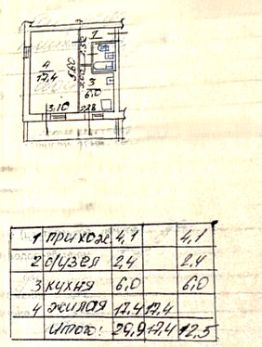 1
4
17,4
3
6,0
3.10
1 прихож 4,1 4,1
2 с/узел 2,4 2,4
3 кухня 6,0 6,0
4 жилая 17,4 17,4
Итого: 29,9 17,4 12,5